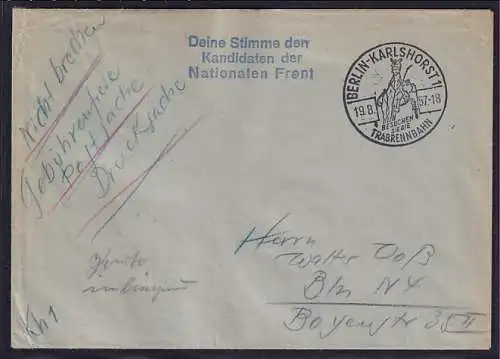 Deine Stimme den
Kandidaten der
Nationalen Front
BERLIN-KARLSHORST 1
19.8. 57-18
BESUCHEN
SIE DIE
TRABRENNBAHN
Nicht brechen
Gebührenfreie
Postsache
Drucksache
Herrn
Walter Voß
Bln N4
Boyenstr 35 II
Kh 1